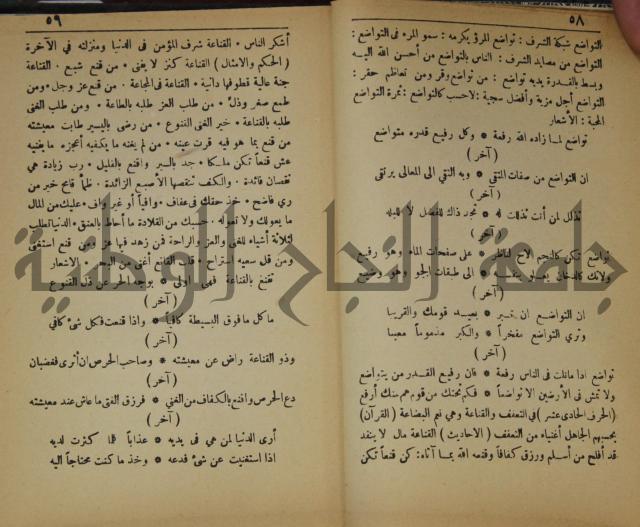 ٥٨
التواضع شبكة الشرف : تواضع المرؤ يكرمه : سمو المرء فى التواضع :
التواضع من مصايد الشرف : الناس بالتواضع من أحسن الله اليه
وبسط بالقدرة يديه تواضع : من تواضع وقر ومن تعاظم حقر :
التواضع أجل مزية وأفضل سجية : لاحسب كالتواضع : ثمرة التواضع
المحبة : الأشعار
تواضع لما زاده الله رفعة * وكل رفيع قدره متواضع
( آخر )
ان التواضع من صفات المتقى * وبه التقي الى المعالى يرتقى
( آخر )
تذلل لمن أنت تذللت له * مجد ذاك للفضل لا للبله
( آخر )
تواضع تكن كالنجم الاح لناظر * على صفحات الماء وهو رفيع
ولاتك كالدخان يعلو بنفسه * الى طبقات الجو وهو وضيع
( آخر )
ان التواضع ان بعيد قومك والقريبا
وترى التواضع مفخراً * والكبر مذموماً معيبا
( آخر )
تواضع اذا مانلت فى الناس رفعة * فان رفيع القدر من يتواضع
ولا تمش فى الأرضين الا تواضعاً * فكم تحتك من قوم هم منك أرفع
( الحرف الحادى عشر ) فى التعفف والقناعة وهي نعم البضاعة ( القرآن )
يحسبهم الجاهل أغنياء من التعفف ( الاحاديث ) القناعة مال لا ينفد
قد أفلح من أسلم ورزق كفافاً وقنعه الله بما آتاه : كن قنعاً تكن
٥٩
أشكر الناس * القناعة شرف المؤمن فى الدنيا ومنزلته في الآخرة
( الحكم والامثال ) القناعة كنز لا يفنى * من قنع شبع . القناعة
جنة عالية قطوفها دانية * القناعة فى المجاعة * من قنع عز وجل * ومن
طمع صغر وذل * من طلب العز طلبه بالطاعة * ومن طلب الغنى
طلبه بالقناعة * خير الغنى القنوع * من رضى باليسير طابت معيشته
من قنع بما هو فيه قرت عينه * من لم يغنه ما يكفيه أعجزه ما يغنيه
عش قنعاً تكن ملكا * جد باليسير واقنع بالقليل * رب زيادة هي
نقصان فائدة * والكف تنقصها الأصبع الزائدة * ظمأ قامح خير من
ري فاضح * خذ حقك فى عفاف * وافياً أو غير واف * عليك من المال
ما يعولك ولا تعوله * حسبك من القلادة ما أحاط بالعنق * الدنيا تطلب
لثلاثة أشياء للغنى والعز والراحة فمن زهد فيها عز ومن قنع استغنى
ومن قل سعيه استراح * قلب القانع أغنى من البحر * الاشعار
تقنع بالقناعة فهي أولى * بوجه الحر عن ذل القنوع
( آخر )
ما كل ما فوق البسيطة كافياً * واذا قنعت فكل شئ كافي
( آخر )
وذو القناعة راض عن معيشته * وصاحب الحرص ان أثرى فغضبان
( آخر )
دع الحرص واقنع بالكفاف من الغنى * فرزق الفتى ما عاش عند معيشته
( آخر )
أرى الدنيا لمن هي فى يديه * عذاباً كلما كثرت لديه
اذا استغنيت عن شئ فدعه * وخذ ما كنت محتاجاً اليه
جامعة النجاح الوطنية